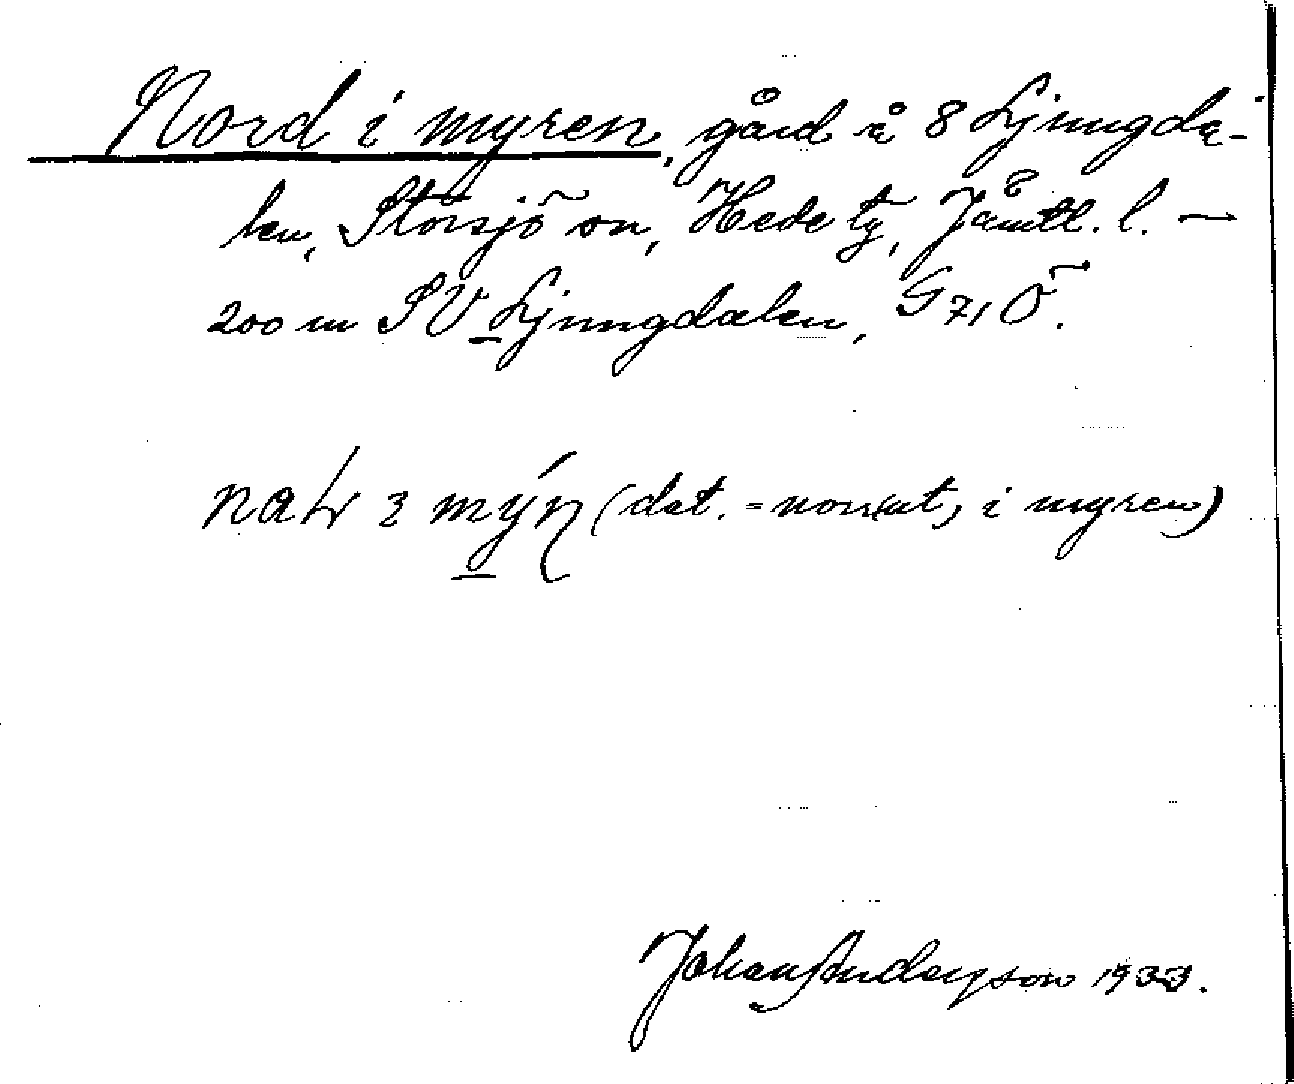 Nord i myren, gård å 8 Ljungda-
len, Storsjö sn, Hede tg, Jämtl. l. —
200 m SV Ljungdalen, G 71 Ö.
mýɳ (dat. = norrut, i myren)
Johan Anderson 1933.